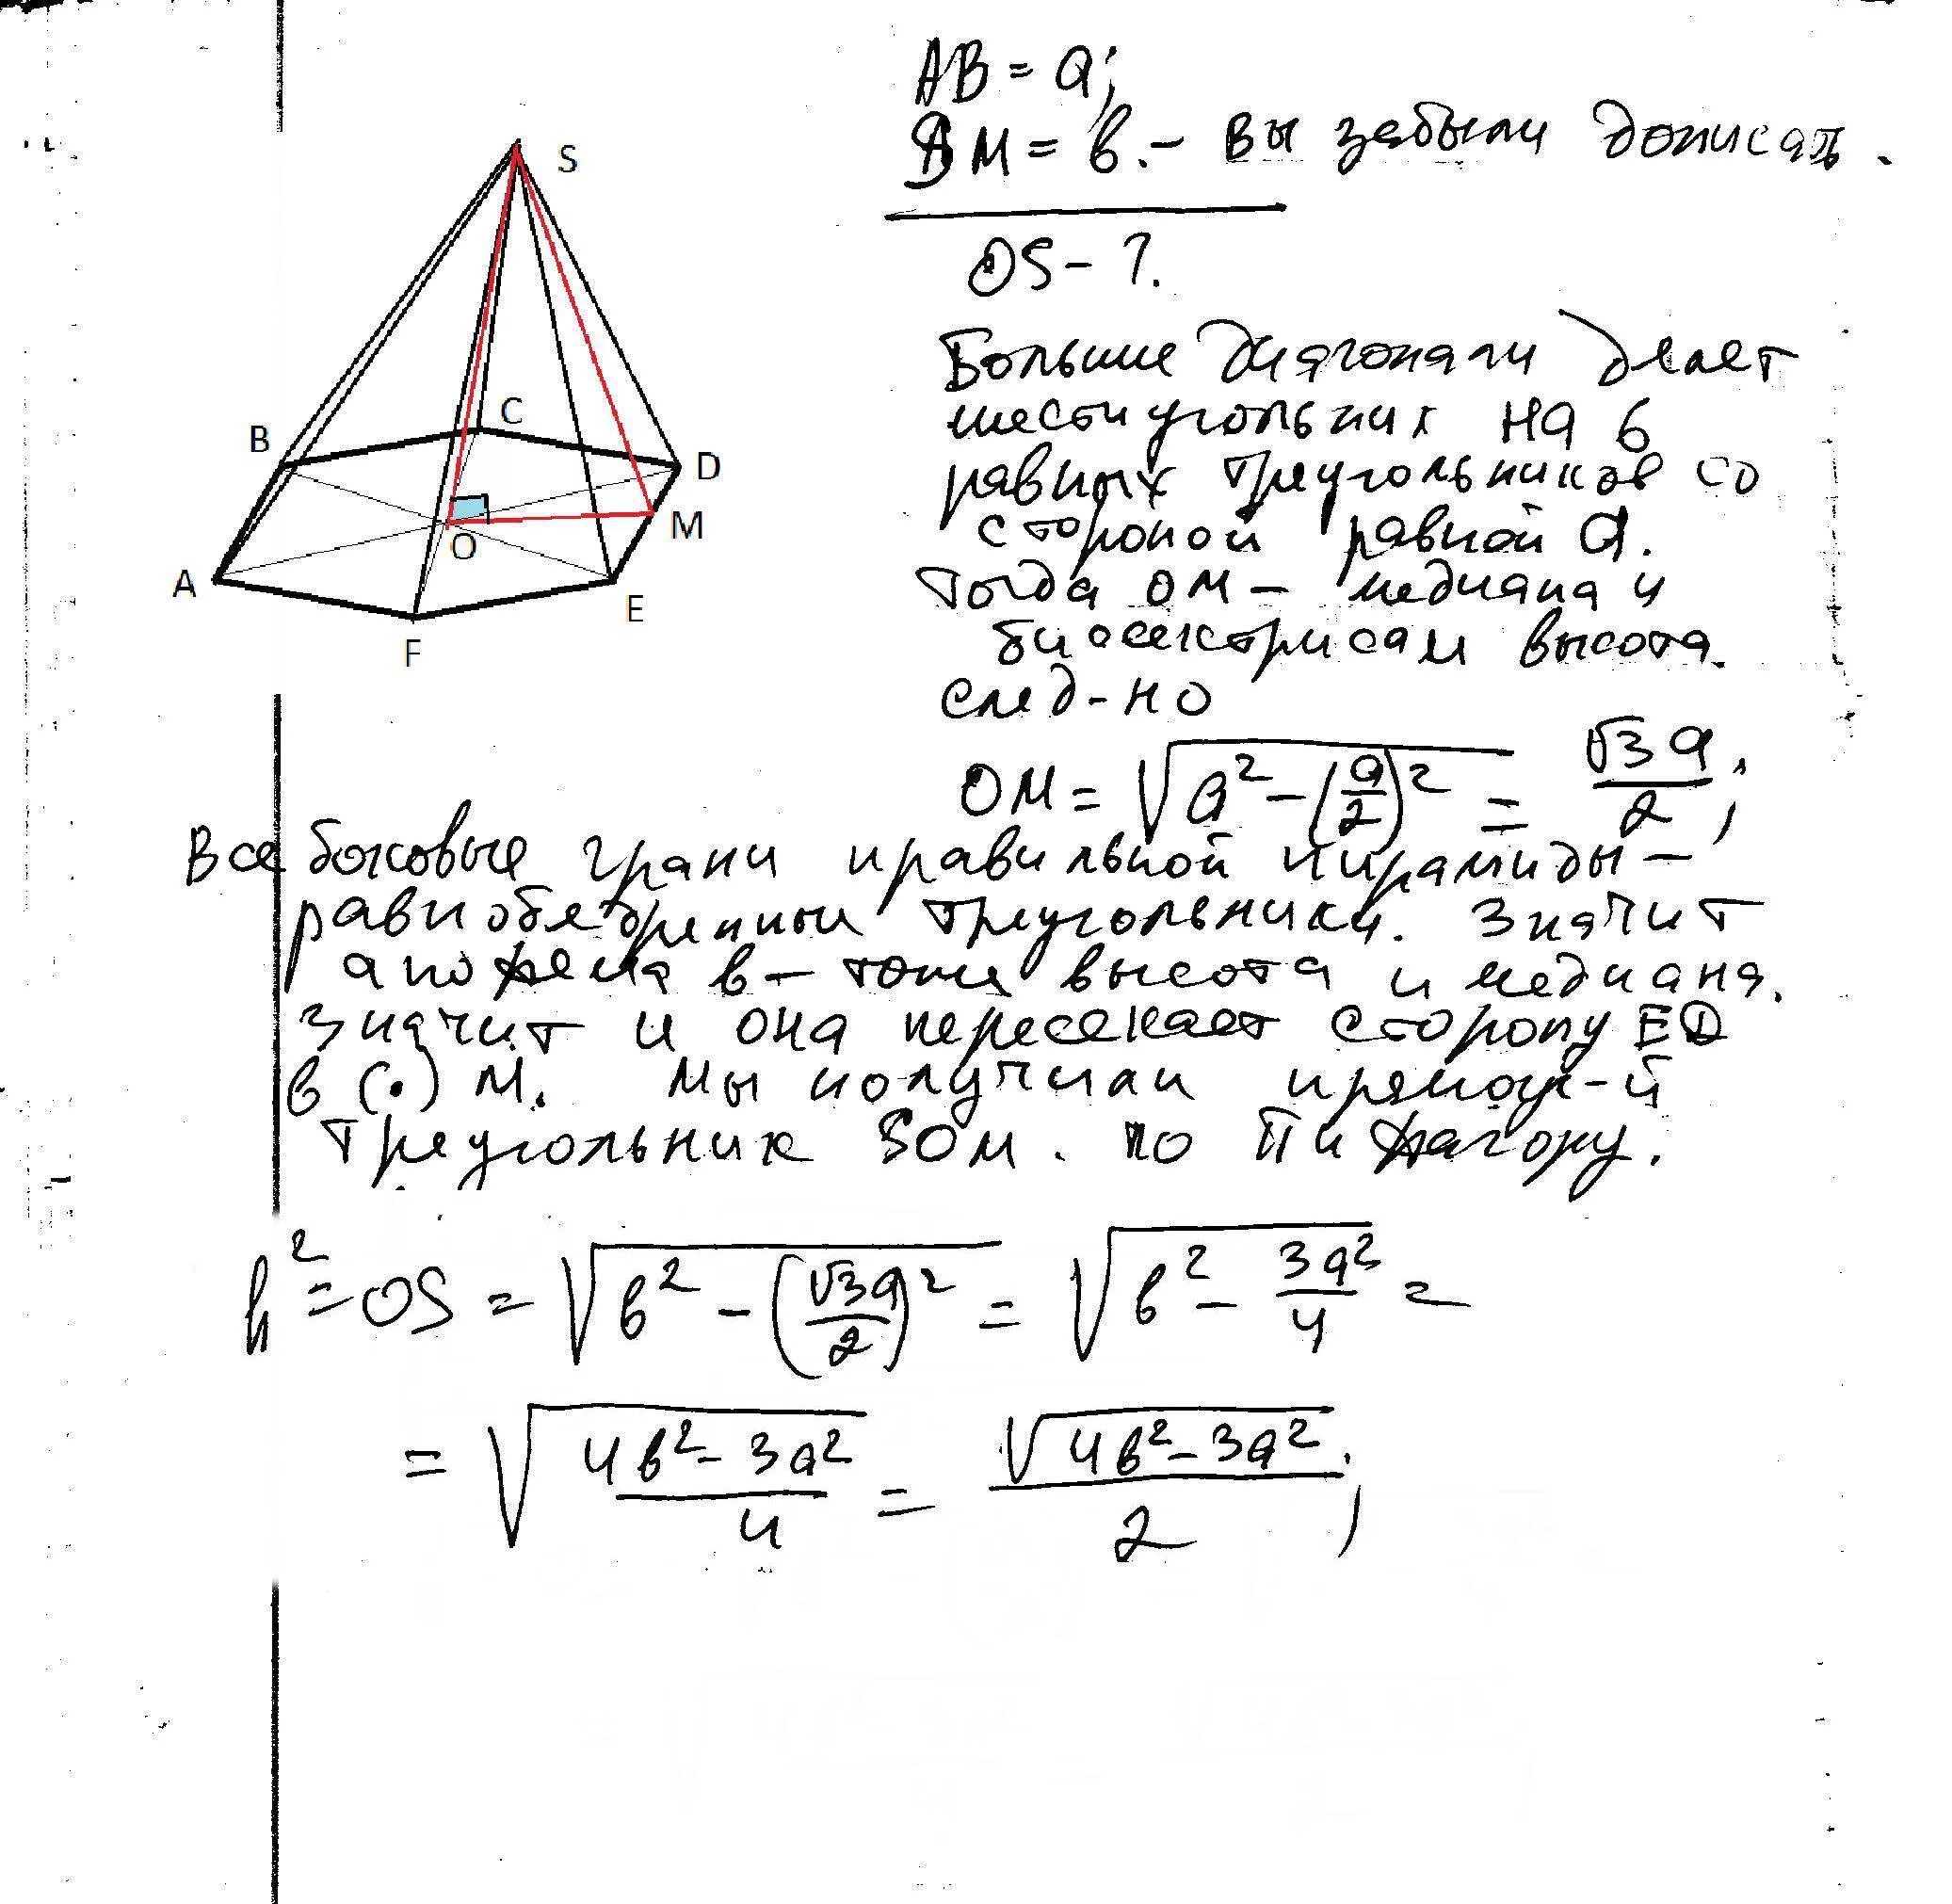 AB = a;
SM = b. – вы забыли дописать.
OS – ?
S
B
C
D
M
O
A
E
F
Больше диагонали делает
шестиугольник на 6
равных треугольников со
стороной равной a.
Тогда OM – медиана и
биссектриса и высота.
след-но
OM = √(a² – (a/2)²) = √3a/2;
Все боковые грани правильной пирамиды –
равнобедренные треугольники. Значит
апофема b – тоже высота и медиана.
Значит и она пересекает сторону ED
в (·) M. Мы получили прямоуг-й
треугольник SOM. По Пифагору.
h² = OS = √(b² – (√3a/2)²) = √(b² – 3a²/4) =
= √((4b² – 3a²)/4) = √(4b² – 3a²)/2;